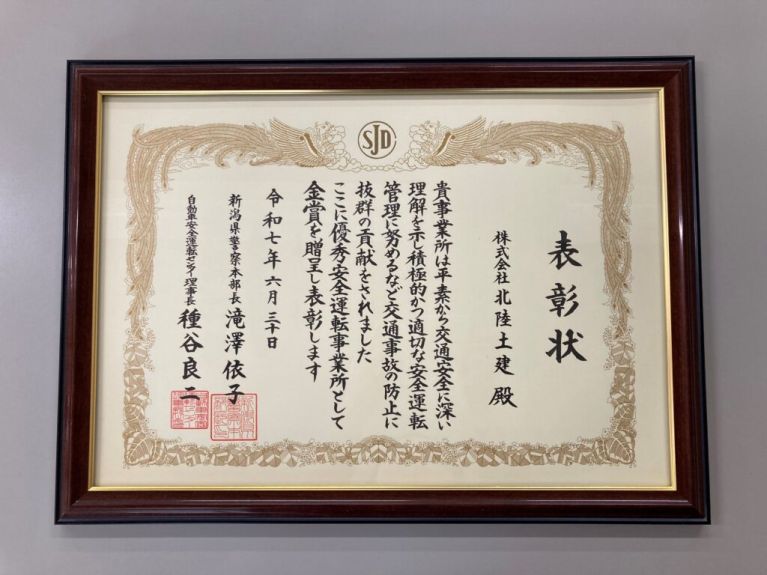 SJD
表彰状
株式会社 北陸土建 殿
貴事業所は平素から交通安全に深い
理解を示し積極的かつ適切な安全運転
管理に努めるなど交通事故の防止に
抜群の貢献をされました
ここに優秀安全運転事業所として
金賞を贈呈し表彰します
令和七年六月三十日
新潟県警察本部長 滝澤依子
自動車安全運転センター理事長 種谷良二